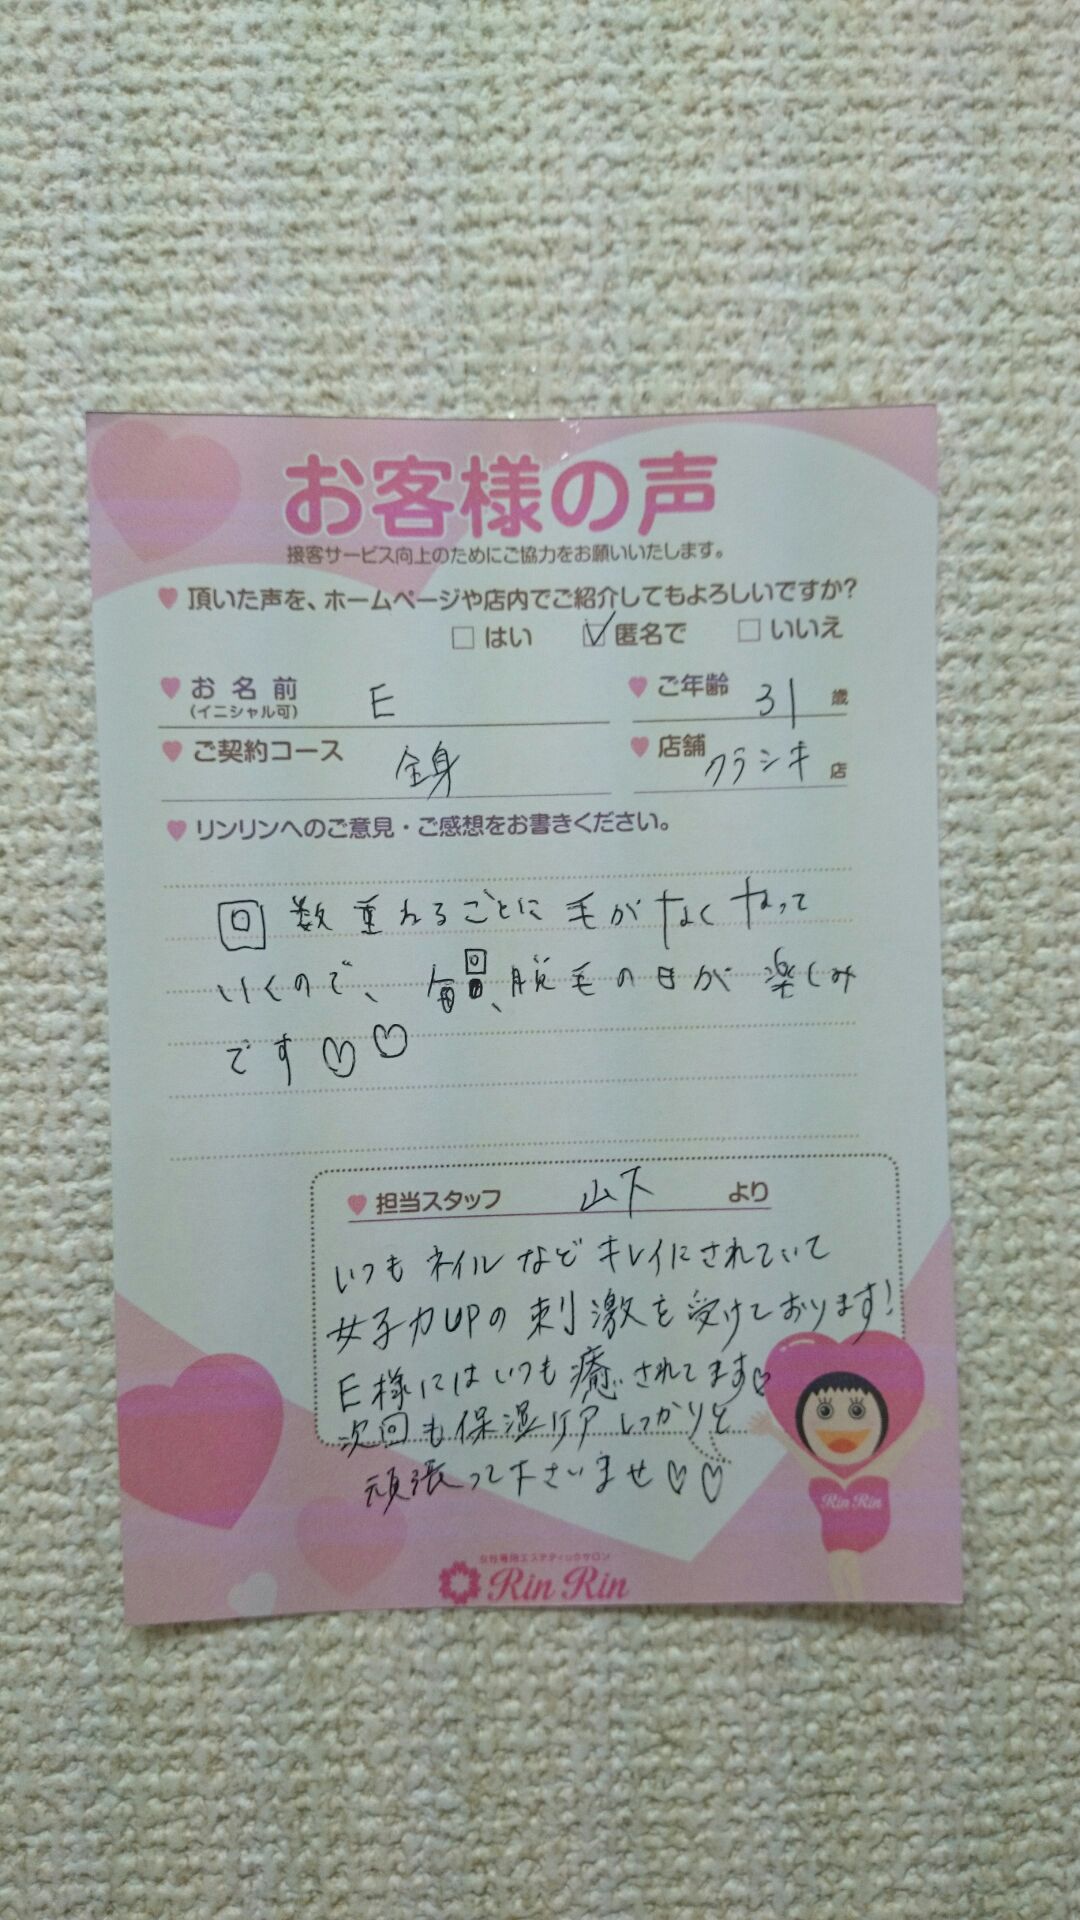 お客様の声
接客サービス向上のためにご協力をお願いいたします。
頂いた声を、ホームページや店内でご紹介してもよろしいですか?
□ はい ☑ 匿名で □ いいえ
お名前 E ご年齢 31 歳
(イニシャル可)
ご契約コース 全身 店舗 クラシキ 店
リンリンへのご意見・ご感想をお書きください。
回数重ねるごとに毛がなくなって
いくので、毎回、脱毛の日が楽しみ
です♡♡
担当スタッフ 山下 より
いつもネイルなどキレイにされていて
女子力UPの刺激を受けております!
E様にはいつも癒されてます♡
次回も保湿ケアしっかりと
頑張って下さいませ♡♡
Rin Rin
女性専用エステティックサロン
Rin Rin